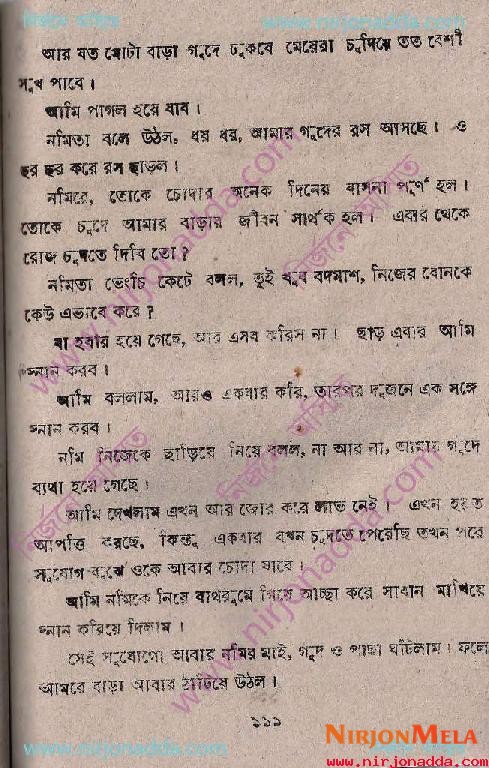 নির্জনে অমিতে
www.nirjonadda.com
আর যত মোটা বাড়া গুদে ঢুকবে মেয়েরা চুদিয়ে তত বেশী
সুখ পাবে।
আমি পাগল হয়ে যাব।
নমিতা বলে উঠল, ধর ধর, আমার গুদের রস আসছে। ও
ছর ছর করে রস ছাড়ল।
নমিরে, তোকে চোদার অনেক দিনের বাসনা পূর্ণ হল।
তোকে চুদে আমার বাড়ার জীবন সার্থক হল। এবার থেকে
রোজ চুদতে দিবি তো?
নমিতা ভেংচি কেটে বলল, তুই খুব বদমাশ, নিজের বোনকে
কেউ এভাবে করে?
যা হবার হয়ে গেছে, আর এসব করিস না। ছাড় এবার আমি
স্নান করব।
আমি বললাম, আরও একবার করি, তারপর দুজনে এক সঙ্গে
স্নান করব।
নমি নিজেকে ছাড়িয়ে নিয়ে বলল, না আর না, আমার গুদে
ব্যথা হয়ে গেছে।
আমি দেখলাম এখন আর জোর করে লাভ নেই। এখন হয়ত
আপত্তি করছে, কিন্তু একবার যখন চুদতে পেরেছি তখন পরে
সুযোগ বুঝে ওকে আবার চোদা যাবে।
আমি নমিকে নিয়ে বাথরুমে গিয়ে আচ্ছা করে সাবান মাখিয়ে
স্নান করিয়ে দিলাম।
সেই সুযোগে আবার নমির মাই, গুদ ও পাছা ঘাঁটলাম। ফলে
আমার বাড়া আবার ঠাটিয়ে উঠল।
১১১
NIRJONMELA
www.nirjonadda.com
www.nirjonadda.com